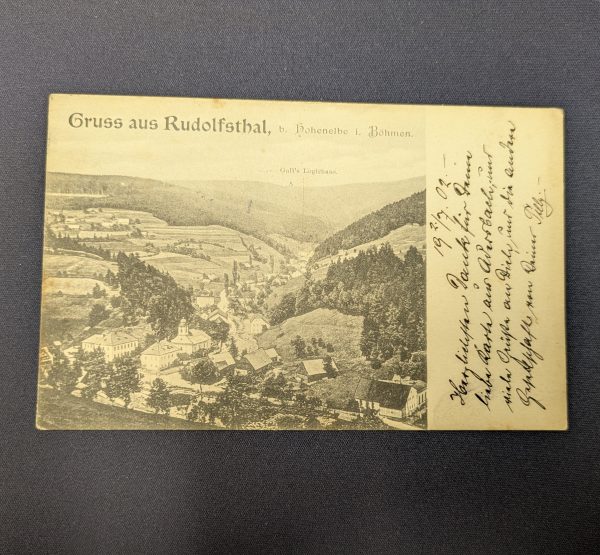 Gruss aus Rudolfsthal, b. Hohenelbe i. Böhmen.
Gall's Logirhaus.
19 2/7 02. –
Herzlichsten Dank für Deine
liebe Karte aus Adersbach, und
viele Grüße an Dich, und die andere
Gesellschaft von Deiner